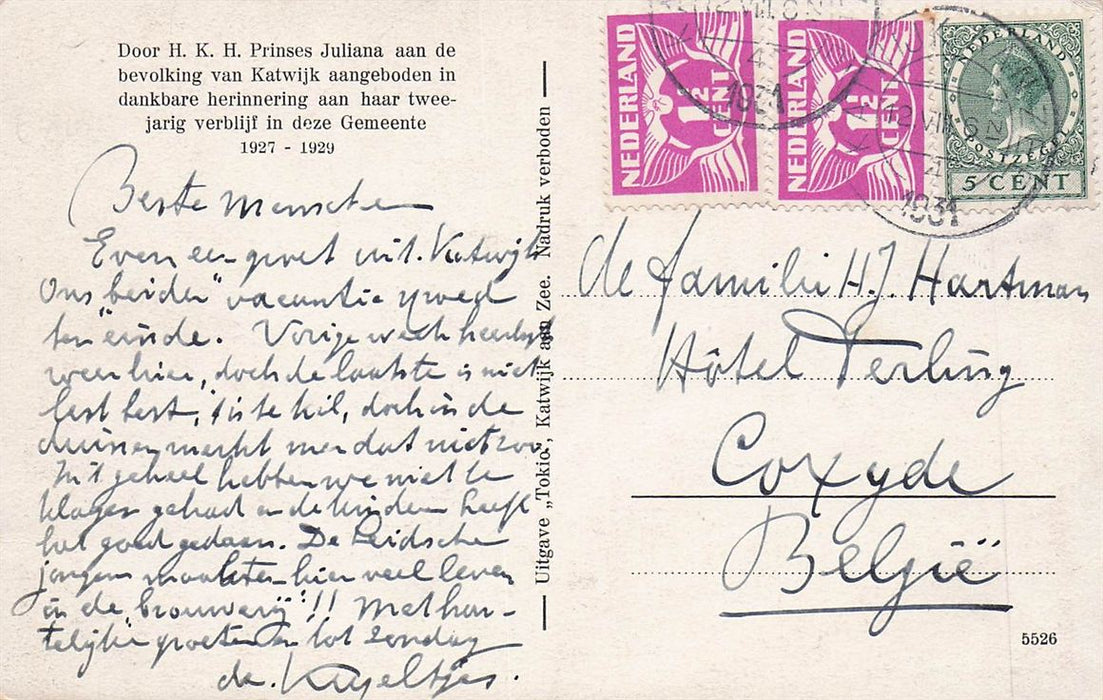 Door H. K. H. Prinses Juliana aan de
bevolking van Katwijk aangeboden in
dankbare herinnering aan haar twee-
jarig verblijf in deze Gemeente
1927 - 1929
Beste Menschen
Even een groet uit Katwijk
Ons beider vacantie spoed
ten einde. Vorige week heerlijk
weer hier, doch de laatste is niet
best best, 't is te kil, doch in de
duinen merkt men dat niet zoo.
In 't geheel hebben we niet te
klagen gehad en de kinderen heeft
het goed gedaan. De Leidsche
jongens maakten hier veel leven
in de brouwerij!! Met har-
telijke groeten en tot Zondag
de
Uitgave „Tokio", Katwijk aan Zee. Nadruk verboden
NEDERLAND
1½ CENT
NEDERLAND
1½ CENT
NEDERLAND
POSTZEGEL
5 CENT
1931
12 VIII
1931
de familie H. J. Hartman
Hôtel Terling
Coxyde
België
5526